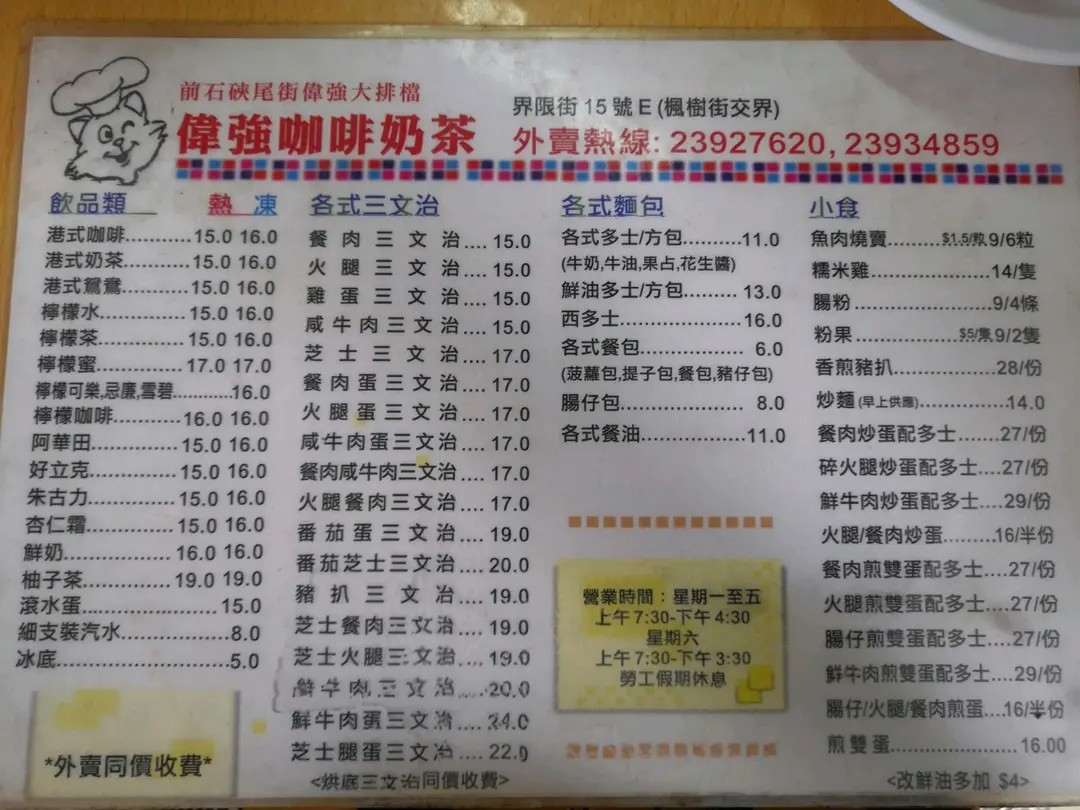 前石硤尾街偉強大排檔
偉強咖啡奶茶
界限街15號E(楓樹街交界)
外賣熱線: 23927620, 23934859
飲品類 熱 凍
港式咖啡...........15.0 16.0
港式奶茶...........15.0 16.0
港式鴛鴦...........15.0 16.0
檸檬水..............15.0 16.0
檸檬茶..............15.0 16.0
檸檬蜜..............17.0 17.0
檸檬可樂,忌廉,雪碧............16.0
檸檬咖啡...........16.0 16.0
阿華田..............15.0 16.0
好立克..............15.0 16.0
朱古力..............15.0 16.0
杏仁霜..............15.0 16.0
鮮奶.................16.0 16.0
柚子茶..............19.0 19.0
滾水蛋.......................15.0
細支裝汽水..................8.0
冰底............................5.0
*外賣同價收費*
各式三文治
餐肉三文治....15.0
火腿三文治....15.0
雞蛋三文治....15.0
咸牛肉三文治....15.0
芝士三文治....17.0
餐肉蛋三文治....17.0
火腿蛋三文治....17.0
咸牛肉蛋三文治....17.0
餐肉咸牛肉三文治....17.0
火腿餐肉三文治....17.0
番茄蛋三文治....19.0
番茄芝士三文治....20.0
豬扒三文治....19.0
芝士餐肉三文治....19.0
芝士火腿三文治....19.0
鮮牛肉三文治....20.0
鮮牛肉蛋三文治....24.0
芝士腿蛋三文治....22.0
<烘底三文治同價收費>
各式麵包
各式多士/方包..........11.0
(牛奶,牛油,果占,花生醬)
鮮油多士/方包......... 13.0
西多士.....................16.0
各式餐包.................. 6.0
(菠蘿包,提子包,餐包,豬仔包)
腸仔包..................... 8.0
各式餐油..................11.0
營業時間：星期一至五
上午7:30-下午4:30
星期六
上午7:30-下午3:30
勞工假期休息
小食
魚肉燒賣.........$1.5/粒 9/6粒
糯米雞.....................14/隻
腸粉........................9/4條
粉果..................$5/隻 9/2隻
香煎豬扒..................28/份
炒麵(早上供應)...............14.0
餐肉炒蛋配多士.......27/份
碎火腿炒蛋配多士....27/份
鮮牛肉炒蛋配多士....29/份
火腿/餐肉炒蛋.........16/半份
餐肉煎雙蛋配多士....27/份
火腿煎雙蛋配多士....27/份
腸仔煎雙蛋配多士....27/份
鮮牛肉煎雙蛋配多士....29/份
腸仔/火腿/餐肉煎蛋....16/半份
煎雙蛋.......................16.00
<改鮮油多加 $4>